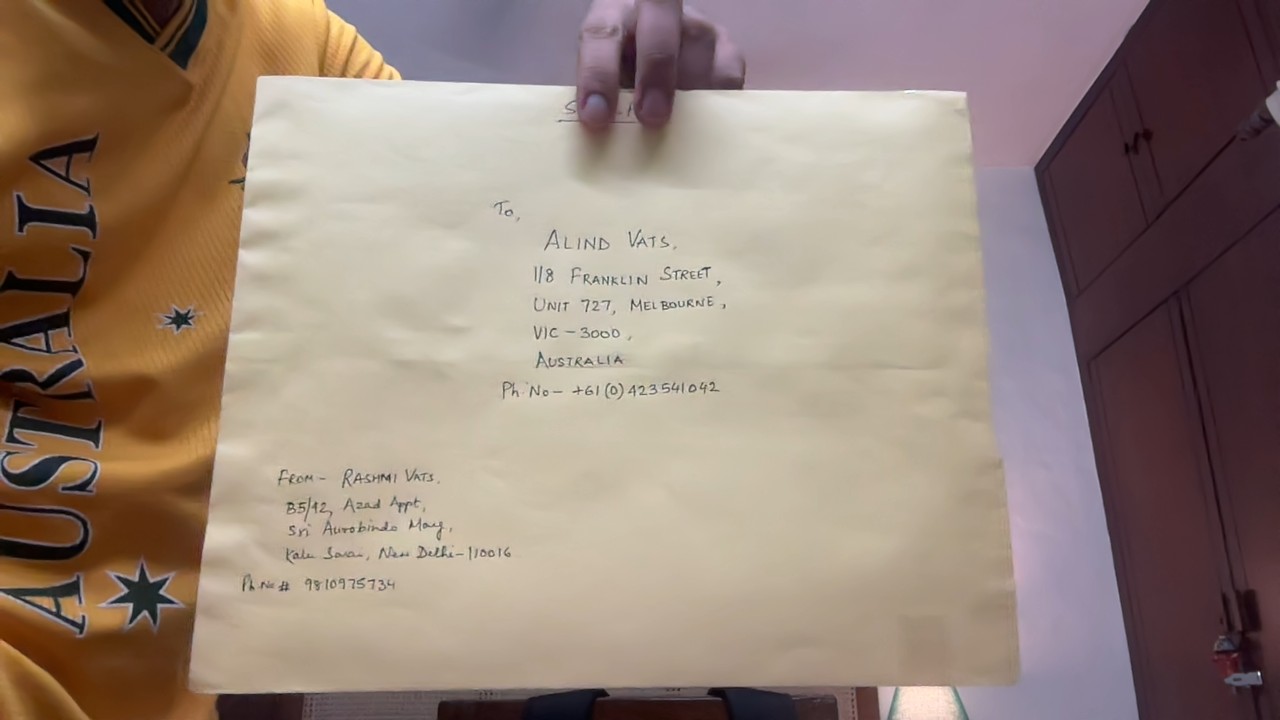 To,
ALIND VATS,
118 FRANKLIN STREET,
UNIT 727, MELBOURNE,
VIC - 3000,
AUSTRALIA
Ph. No - +61 (0) 423541042
FROM - RASHMI VATS.
B5/42, Azad Appt,
Sri Aurobindo Marg,
Kalu Sarai, New Delhi - 110016
Ph. No # 9810975734
AUSTRALIA